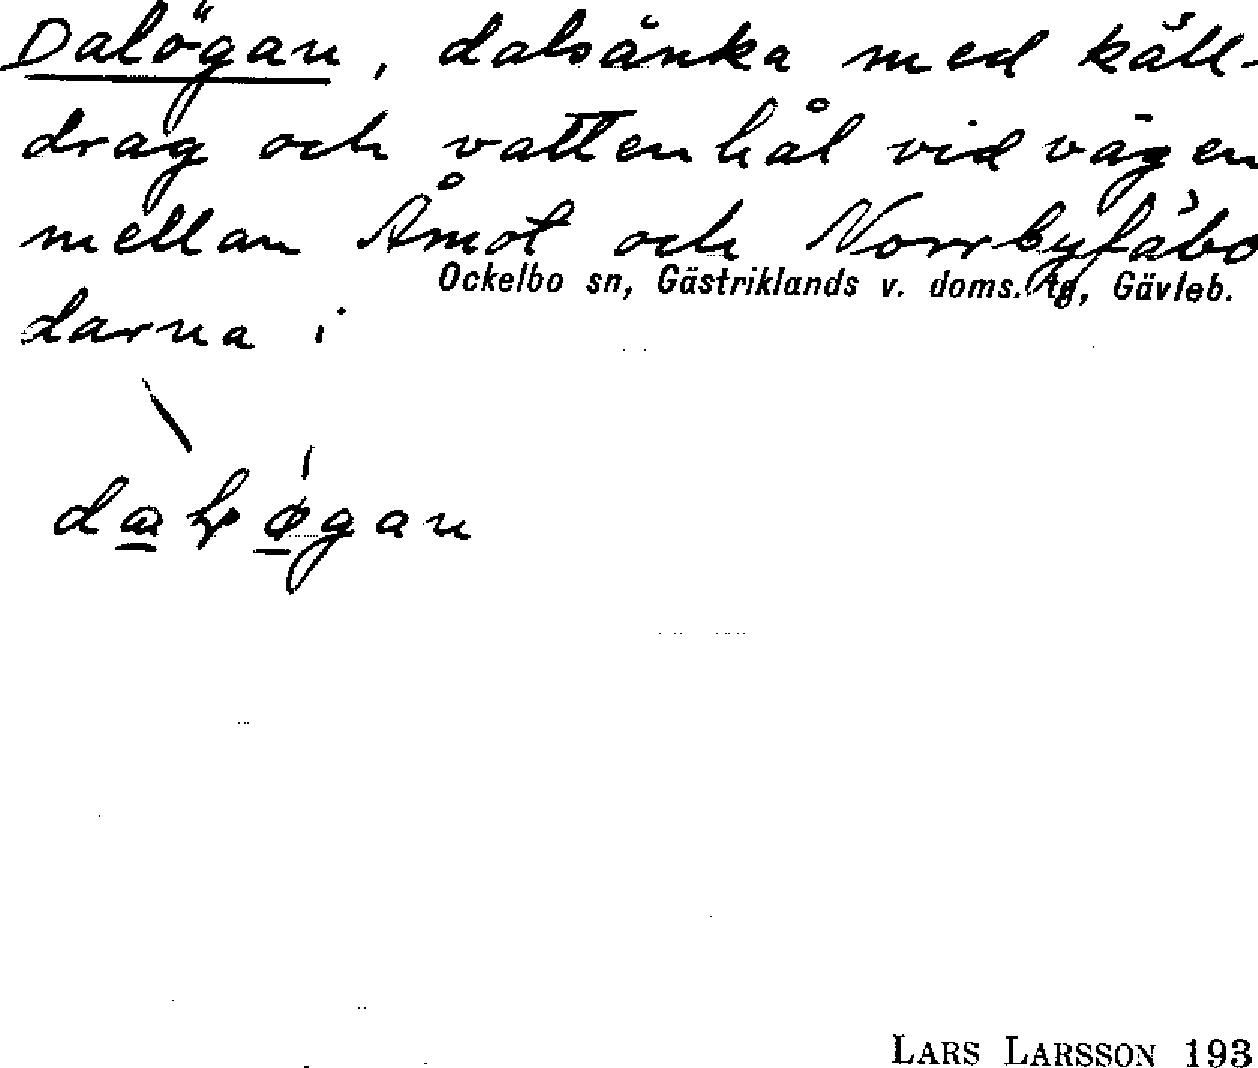 Dalögan, dalsänka med käll-
drag och vattenhål vid vägen
mellan Åmot och Norrbyfäbo
Ockelbo sn, Gästriklands v. doms. tg, Gävleb.
darna i
LARS LARSSON 193